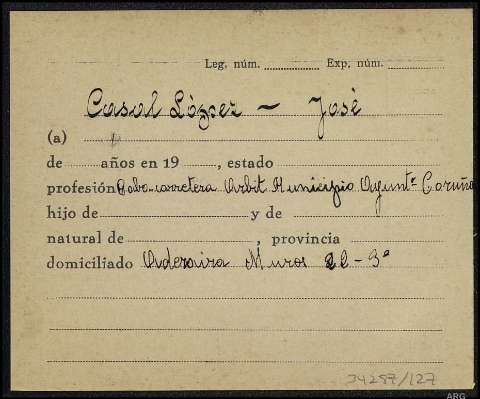 Leg. núm. Exp. núm.
Casal López - José
(a)
de años en 19 , estado
profesión Cabo-carretera Arbit Municipio Ayuntº Coruña
hijo de y de
natural de , provincia
domiciliado Muros 22-3º
34287/127
ARG